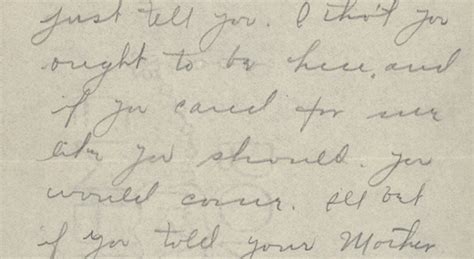 just tell you. I tho't you
ought to be here, and
if you cared for me
like you should. you
would come. Ill bet
if you told your Mother